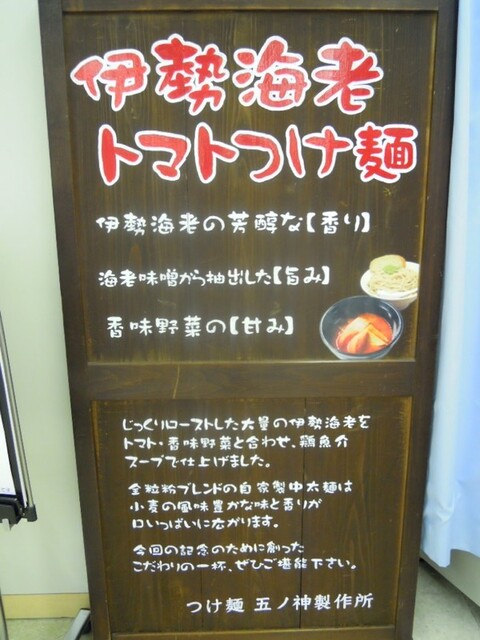 伊勢海老
トマトつけ麺
伊勢海老の芳醇な【香り】
海老味噌から抽出した【旨み】
香味野菜の【甘み】
じっくりローストした大量の伊勢海老を
トマト・香味野菜と合わせ、鶏魚介
スープで仕上げました。
全粒粉ブレンドの自家製中太麺は
小麦の風味豊かな味と香りが
口いっぱいに広がります。
今回の記念のために創った
こだわりの一杯、ぜひご堪能下さい。
つけ麺 五ノ神製作所